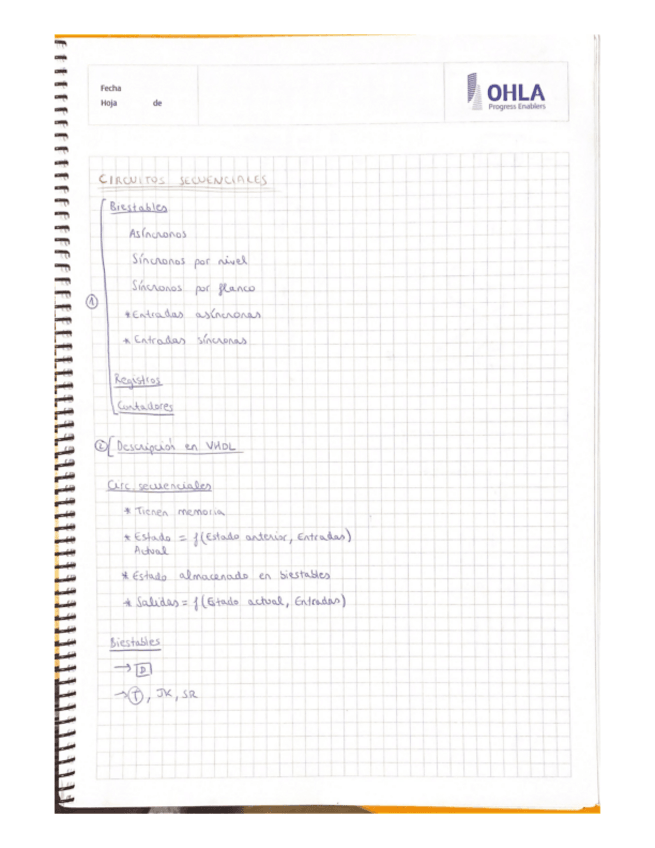 Fecha
Hoja de
OHLA
Progress Enablers
CIRCUITOS SECUENCIALES
Biestables
Asíncronos
Síncronos por nivel
Síncronos por flanco
* Entradas asíncronas
* Entradas síncronas
①
Registros
Contadores
② Descripción en VHDL
Circ. secuenciales
* Tienen memoria
* Estado = f(Estado anterior, Entradas)
Actual
* Estado almacenado en biestables
* Salidas = f(Estado actual, Entradas)
Biestables
→ D
→ T, JK, SR